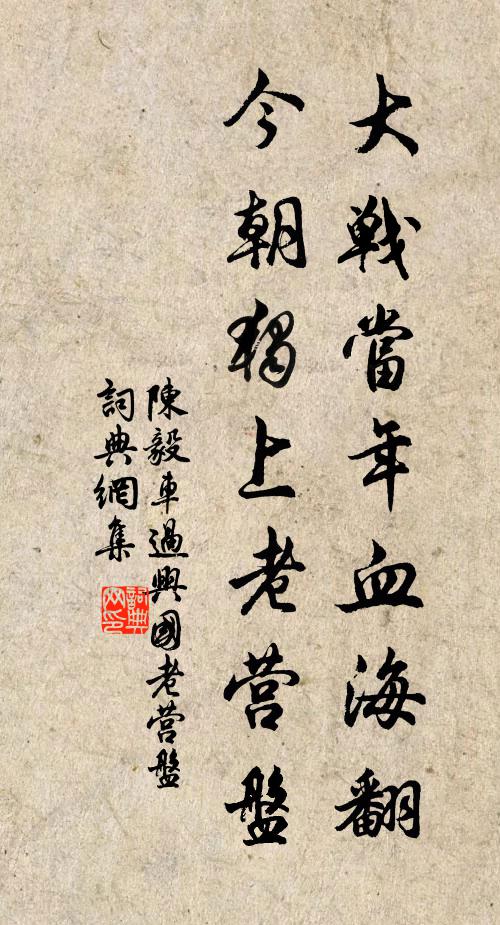 大戰當年血海翻
今朝獨上老营盤
陳毅車過興國老营盤
詞典網集
詞典网印